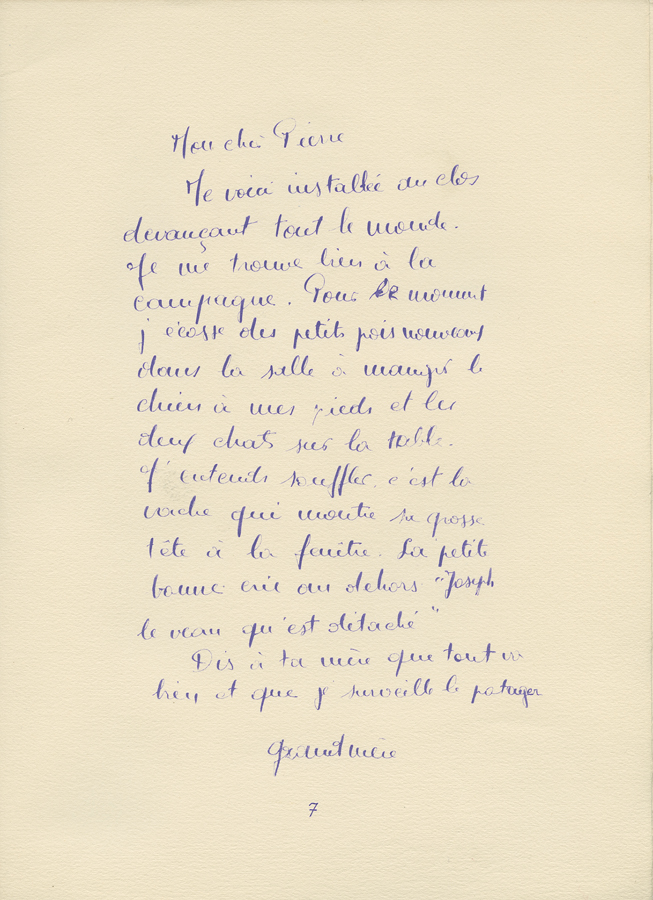 Mon cher Pierre
Me voici installée au clos
devançant tout le monde.
Je me trouve bien à la
campagne. Pour le moment
j'écosse des petits pois nouveaux
dans la salle à manger le
chien à mes pieds et les
deux chats sur la table.
J'entends souffler, c'est la
vache qui montre sa grosse
tête à la fenêtre. La petite
bonne crie au dehors "Joseph
le veau qu'est détaché"
Dis à ta mère que tout va
bien et que je surveille le potager
Grand mère
7